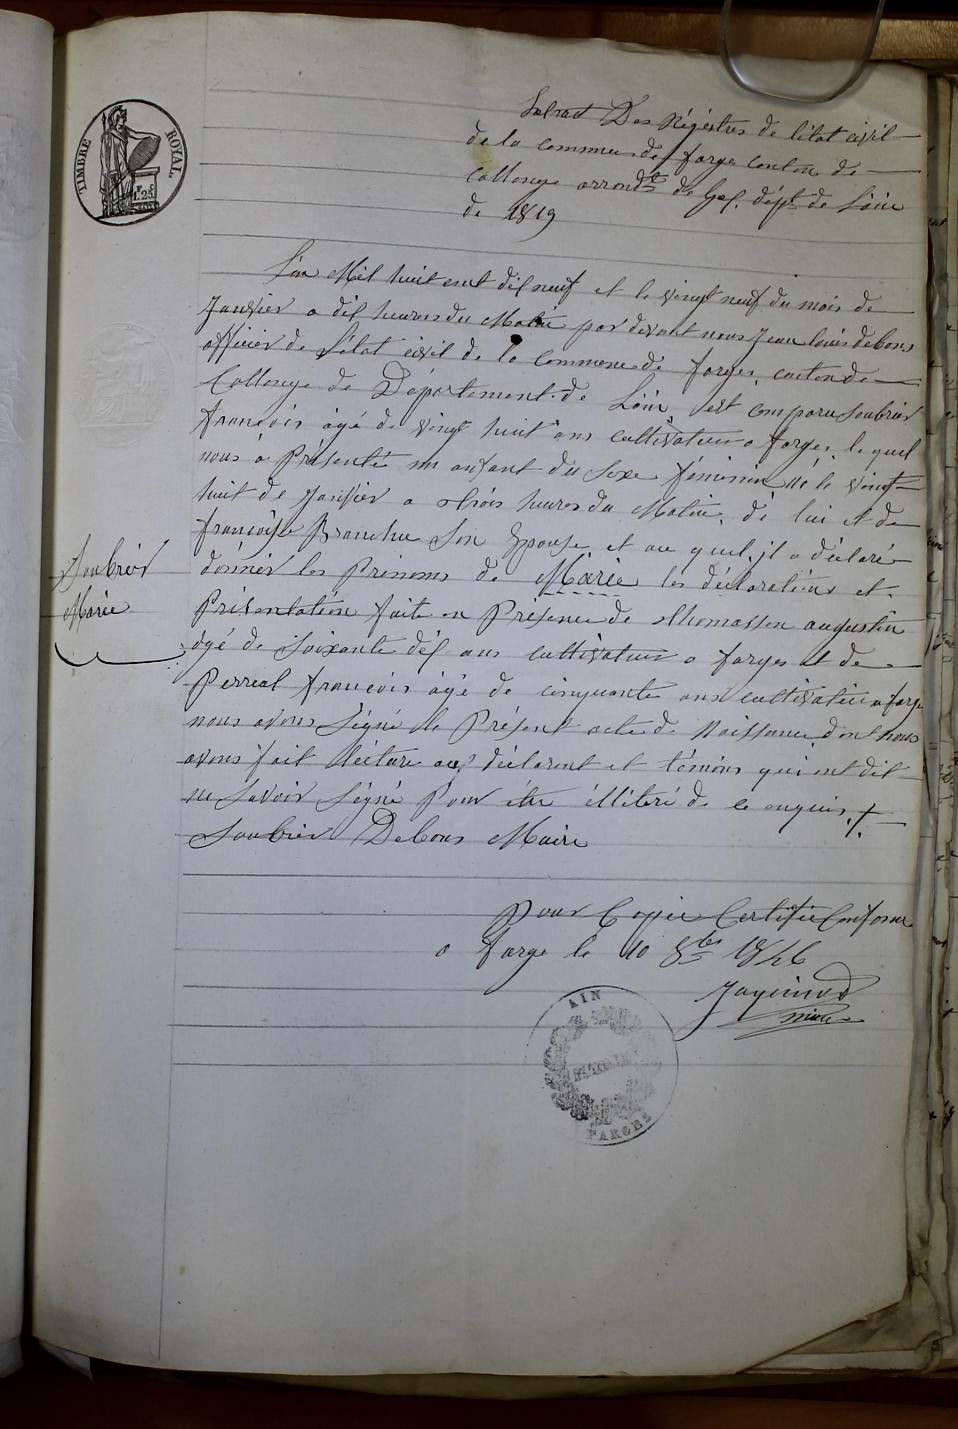 TIMBRE ROYAL
1F 25c
Extrait Des Régistres de létat civil
de la commune de farges canton de
Collonge arrondt de Gex, dépt de Láin
de 1819
Lán Mil huit cent dix neuf et le vingt neuf du mois de
Janvier a dix heures du Matin par devant nous Jean louis debons
officier de l'état civil de la commune de farges, canton de
Collonge de Département de Láin, est comparu Soubrier
françois âgé de vingt huit ans cultivateur a farges, le quel
nous a Présenté un anfant du Sexe féminin né le vingt
huit de Janvier a trois heures du Matin, de lui et de
françoise Branchu Son Epouse et au quel il a déclaré
donner les Prenoms de Marie les déclaration et
Présentation faite en Presence de thomasson augustin
âgé de Soixante dix ans cultivateur a farges et de
Perreal françois âgé de cinquante ans cultivateur a farge
nous avons Signé le Présent acte de Naissance dont nous
avons fait lécture aux déclarant et témoins qui ont dit
ne Savoir Signé Pour être illiteré de ce enquis
Soubrier Debons Maire
Soubrier
Marie
Pour Copie Certifiée Conforme
a farge le 10 8bre 1846
maire
AIN
FARGES